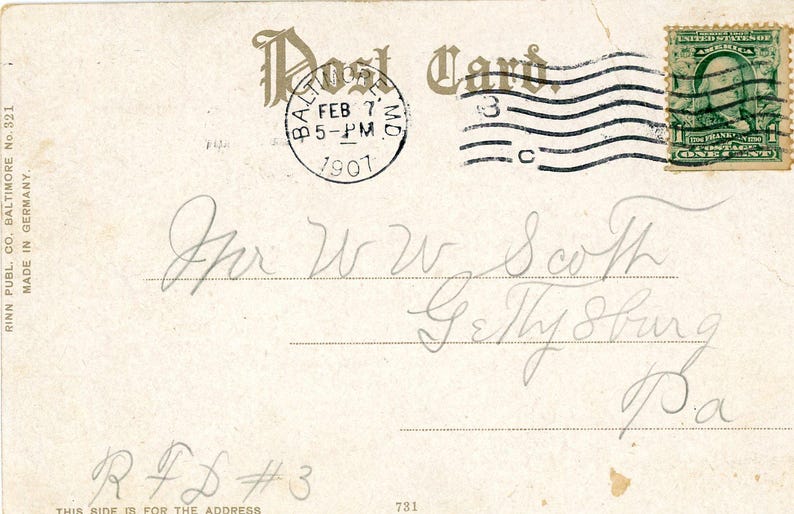 Post Card.
BALTIMORE, MD.
FEB 7
5-PM
1907
B
C
SERIES 1902
UNITED STATES OF
AMERICA
1706 FRANKLIN 1790
POSTAGE
ONE CENT
RINN PUBL. CO. BALTIMORE No. 321
MADE IN GERMANY.
Mr W W Scott
Gettysburg
Pa
R F D #3
THIS SIDE IS FOR THE ADDRESS
731